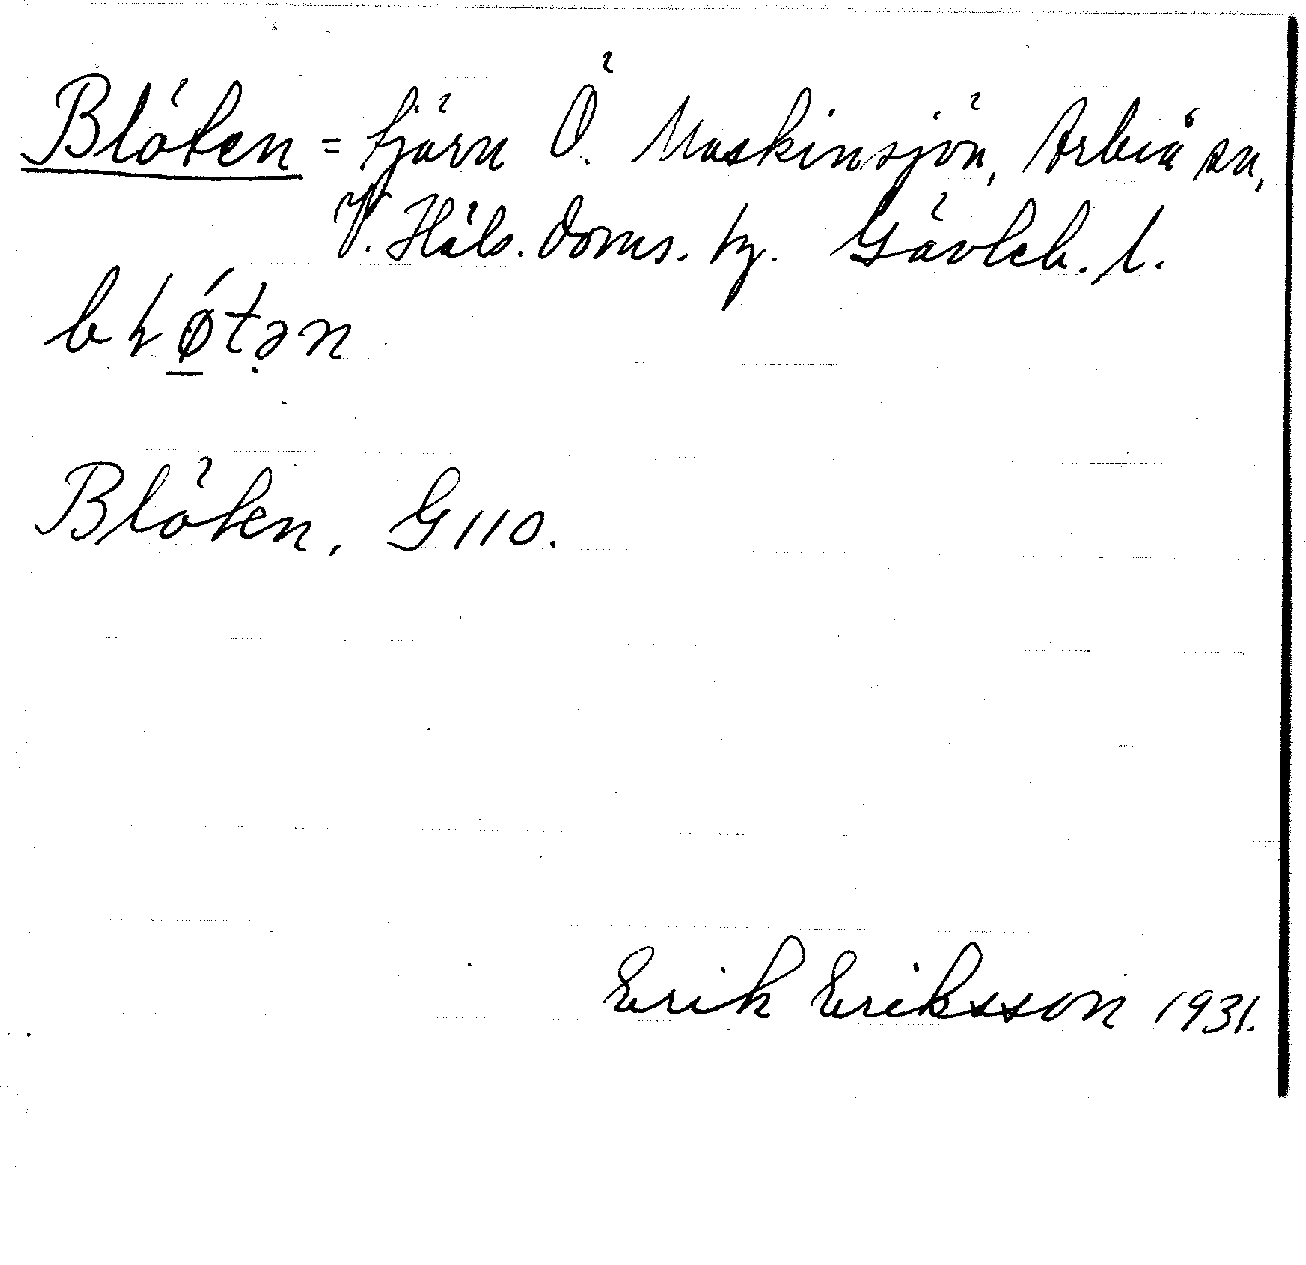 Blöten = tjärn Ö. Maskinsjön, Arbrå sn,
V. Häls. doms. tg. Gävleb. l.
bɫǿtən
Blöten, G110.
Erik Eriksson 1931.